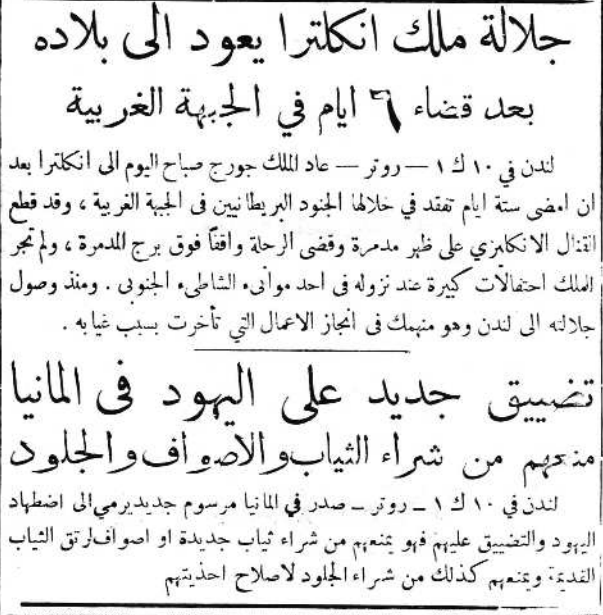 جلالة ملك انكلترا يعود الى بلاده
بعد قضاء ٦ ايام في الجبهة الغربية
لندن في ١٠ ك ١ — روتر — عاد الملك جورج صباح اليوم الى انكلترا بعد
ان امضى ستة ايام تفقد في خلالها الجنود البريطانيين فى الجبهة الغربية ، وقد قطع
القنال الانكليزي على ظهر مدمرة وقضى الرحلة واقفاً فوق برج المدمرة ، ولم تجر
الملك احتفالات كبيرة عند نزوله فى احد موانىء الشاطىء الجنوبى . ومنذ وصول
جلالته الى لندن وهو منهمك فى انجاز الاعمال التي تأخرت بسبب غيابه .
تضييق جديد على اليهود فى المانيا
منعهم من شراء الثياب والاصواف والجلود
لندن في ١٠ ك ١ ـ روتر ـ صدر في المانيا مرسوم جديد يرمي الى اضطهاد
اليهود والتضييق عليهم فهو يمنعهم من شراء ثياب جديدة او اصواف لرتق الثياب
القديمة ويمنعهم كذلك من شراء الجلود لاصلاح احذيتهم